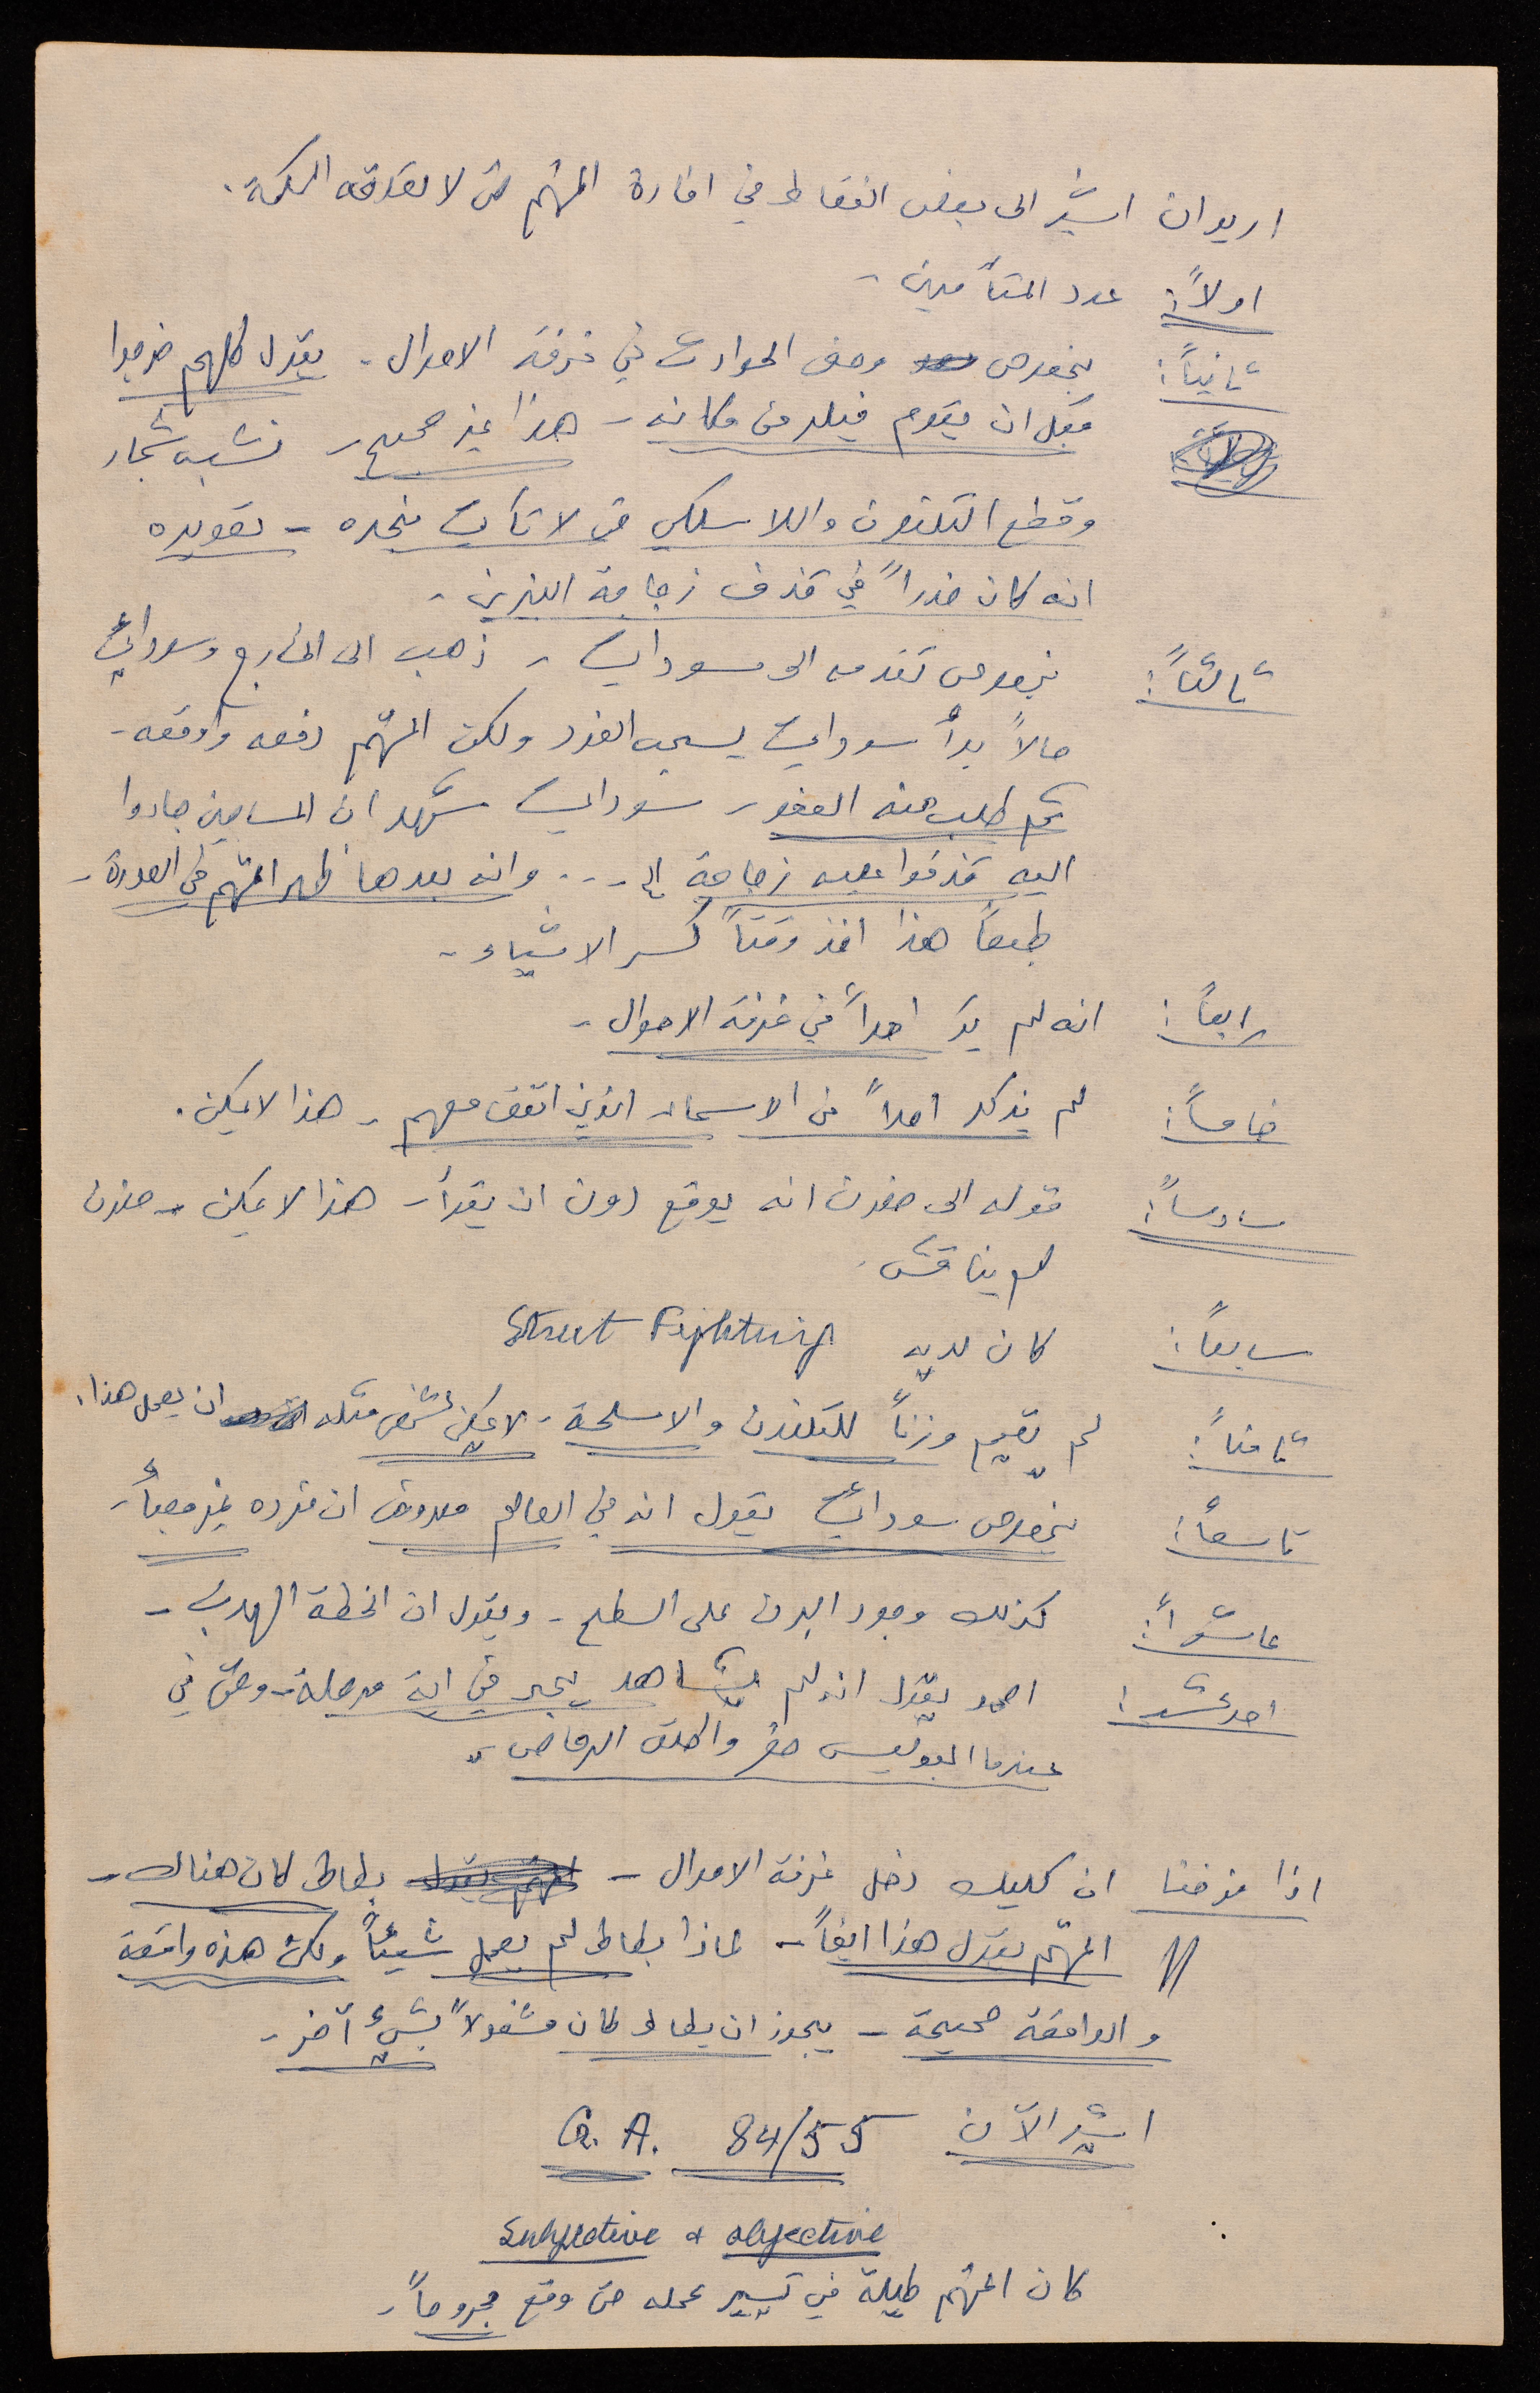 اريد ان اشير الى بعض النقاط في افادة المتهم حتى لا تصدقه المحكمة.
اولاً: عدد المتآمرين -
ثانياً: بخصوص وصف الحوادث في غرفة الاحوال - يقول كلهم خرجوا
قبل ان يقوم فيلد من مكانه - هذا غير صحيح - نشب شجار
وقطع التلفون واللاسلكي حتى لا تأتي نجده - تصويره
انه كان حذراً في قذف زجاجة البنزين -
ثالثاً: بخصوص تقدمه الى سوداي - ذهب الى الخارج وسوداي
حالاً بدأ سوداي يسحب الفرد ولكن المتهم دفعه واوقعه -
ثم طلب منه العفو - سوداي شهد ان المساجين جاءوا
اليه قذفوا عليه زجاجة الخ ... وانه بعدها ظهر المتهم في الصورة -
طبعاً هذا اخذ وقتاً كسر الاشياء -
رابعاً: انه لم ير احداً في غرفة الاحوال -
خامساً: لم يذكر احداً من الاسماء الذين اتفق معهم - هذا لا يمكن.
سادساً: قوله الى حفرن انه يوقع دون ان يقرأ - هذا لا يمكن - حفرن
لم يناقش.
سابعاً: كان لديه Street Fighting
ثامناً: لم يقيم وزناً للتلفون والاسلحة - لا يمكن لشخص مثله ان يعمل هذا.
تاسعاً: بخصوص سوداي يقول انه في العالم معروف ان فرده غير معبأ -
عاشراً: كذلك وجود البرن على السطح - ويقول ان الخطة الهرب -
احد عشر: احمد يقول انه لم يشاهد يجبر في اية مرحلة - وحتى في
عندما البوليس حضر واطلق الرصاص -
اذا فرضنا ان كليك دخل غرفة الاحوال - بطاط كان هناك -
المتهم يقول هذا ايضاً - لماذا بطاط لم يعمل شيئاً ولكن هذه واقعة
والواقعة صحيحة - يجوز ان بطاط كان مشغولاً بشيء آخر -
اشير الآن Cr. A. 84/55
Subjective & objective
كان المتهم طيلة في تسيير عمله حتى وقع مجروحاً -